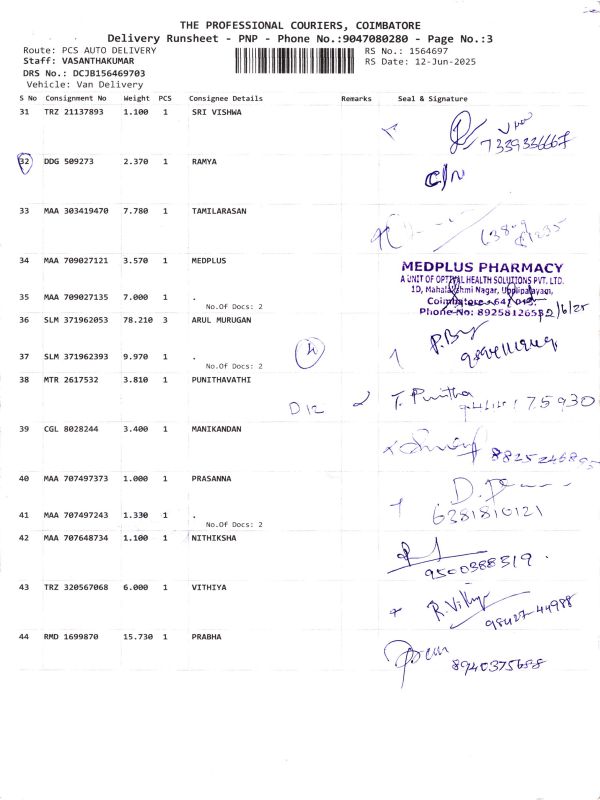 THE PROFESSIONAL COURIERS, COIMBATORE
Delivery Runsheet - PNP - Phone No.:9047080280 - Page No.:3
Route: PCS AUTO DELIVERY RS No.: 1564697
Staff: VASANTHAKUMAR RS Date: 12-Jun-2025
DRS No.: DCJB156469703
Vehicle: Van Delivery
S No Consignment No Weight PCS Consignee Details Remarks Seal & Signature
31 TRZ 21137893 1.100 1 SRI VISHWA
7339336667
32 DDG 509273 2.370 1 RAMYA
C/N
33 MAA 303419470 7.780 1 TAMILARASAN
34 MAA 709027121 3.570 1 MEDPLUS
MEDPLUS PHARMACY
A UNIT OF OPTIVAL HEALTH SOLUTIONS PVT. LTD.
1D, Mahalakshmi Nagar, Uppilipalayam,
35 MAA 709027135 7.000 1 .
Coimbatore - 641 015.
No.Of Docs: 2
Phone No: 8925812653
12/6/25
36 SLM 371962053 78.210 3 ARUL MURUGAN
37 SLM 371962393 9.970 1 .
No.Of Docs: 2
4
38 MTR 2617532 3.810 1 PUNITHAVATHI
D12 T. Punitha
39 CGL 8028244 3.400 1 MANIKANDAN
40 MAA 707497373 1.000 1 PRASANNA
41 MAA 707497243 1.330 1 .
6381810121
No.Of Docs: 2
42 MAA 707648734 1.100 1 NITHIKSHA
9500388319
43 TRZ 320567068 6.000 1 VITHIYA
R. Vithya
98427 44988
44 RMD 1699870 15.730 1 PRABHA
8940375688